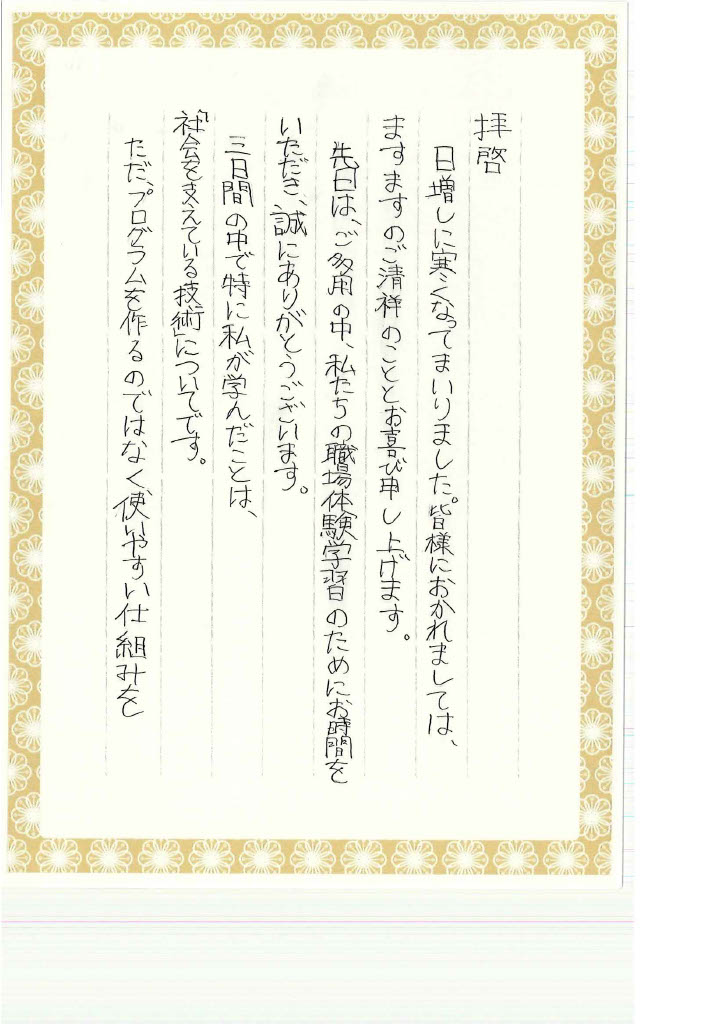 拝啓
日増しに寒くなってまいりました。皆様におかれましては、
ますますのご清祥のこととお喜び申し上げます。
先日は、ご多用の中、私たちの職場体験学習のためにお時間を
いただき、誠にありがとうございます。
三日間の中で特に私が学んだことは、
「社会を支えている技術」についてです。
ただ、プログラムを作るのではなく、使いやすい仕組みを